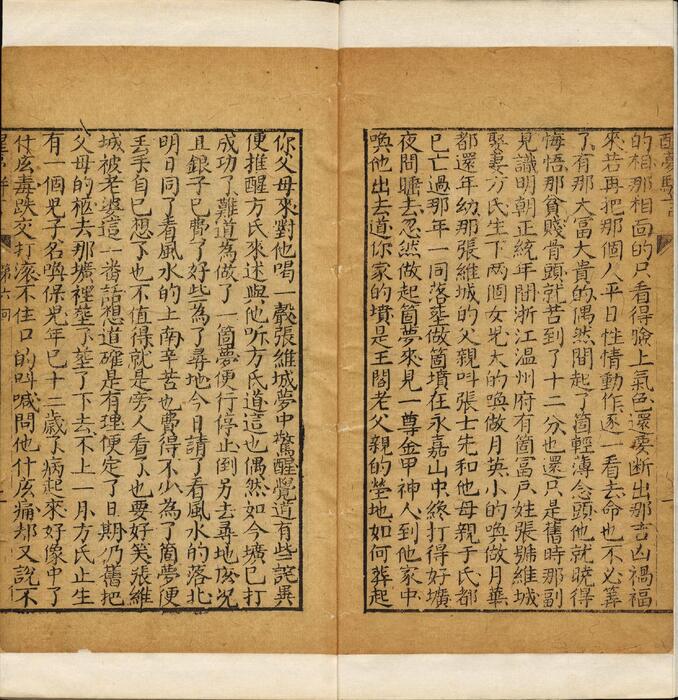 醒夢駢言
的相那相面的只看得臉上氣色還要断出那吉凶禍福
來若再把那個人平日性情動作逐一看去命也不必筭
了有那大冨大貴的偶然間起了箇輕薄念頭他就暁得
悔悟那貧賤骨頭就苦到了十二分也還只是舊時那副
見識明朝正統年間浙江温州府有箇冨戸姓張號維城
娶妻方氏生下两個女兒大的喚做月英小的喚做月華
都還年幼那張維城的父親呌張士先和他母親于氏都
已亡過那年一同落塟做箇墳在永嘉山中終打得好壙
夜間睡去忽然做起箇夢來見一尊金甲神人到他家中
喚他出去道你家的墳是王閣老父親的塋地如何葬起
你父母來對他唱一聲張維城夢中驚醒覺道有些詫異
便推醒方氏來述與他听方氏道這也偶然如今壙已打
成功了難道為做了一箇夢便行停止倒另去尋地从况
且銀子已費了好些為了尋地今日請了看風水的落北
明日同了看風水的上南辛苦也費得不少為了箇夢便
丟手自已想了也不值得就是旁人看了也要好笑張維
城被老婆這一番話想道確是有理便定了日期仍舊把
父母的柩去那壙裡塟了塟了下去不上一月方氏止生
有一個兒子名喚保兒年已十二歲了病起來好像中了
什庅毒跌交打滚不住口的叫喊問他什庅痛却又說不
第六回